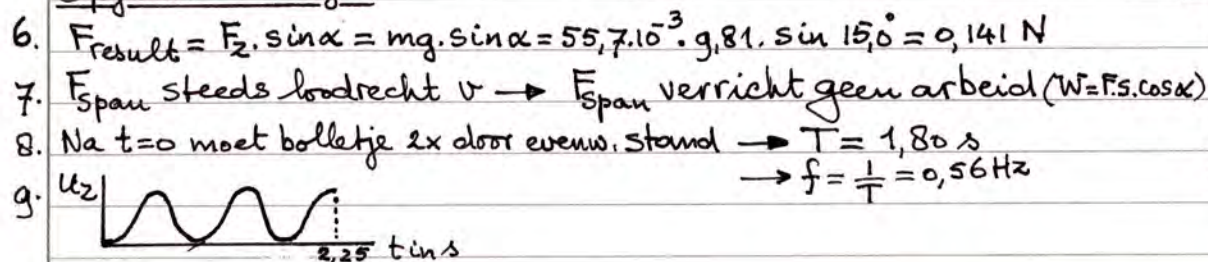 6. Fresult = Fz. sinα = mg. sinα = 55,7.10⁻³. 9,81. sin 15,0° = 0,141 N
7. Fspan steeds loodrecht v → Fspan verricht geen arbeid (W=F.s.cosα)
8. Na t=0 moet bolletje 2x door evenw. stand → T = 1,80 s
→ f = 1/T = 0,56 Hz
9. Uz
2,25 t in s